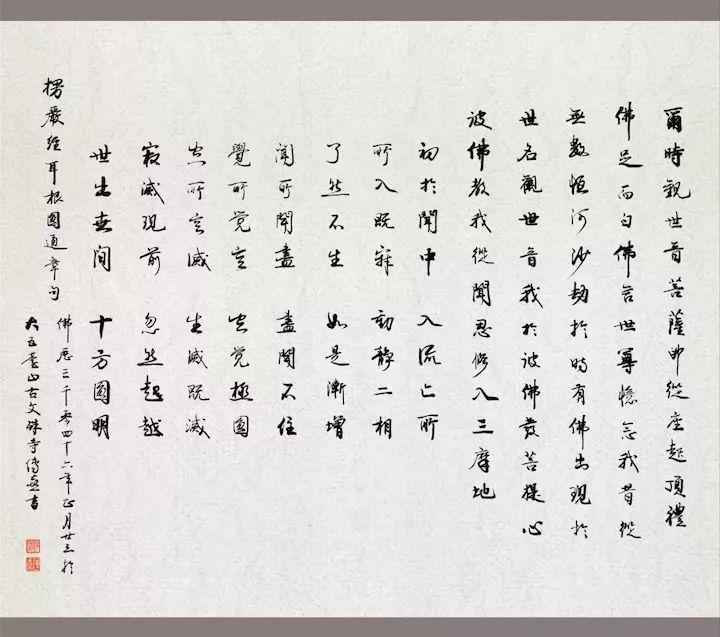 爾時觀世音菩薩即從座起頂禮
佛足而白佛言世尊憶念我昔從
無數恒河沙劫於時有佛出現於
世名觀世音我於彼佛發菩提心
彼佛教我從聞思修入三摩地
初於聞中 入流亡所
所入既寂 動靜二相
了然不生 如是漸增
聞所聞盡 盡聞不住
覺所覺空 空覺極圓
空所空滅 生滅既滅
寂滅現前 忽然超越
世出世間 十方圓明
楞嚴經耳根圓通章句
佛歷三千零四十六年正月廿三於
大五臺山古文殊寺 書